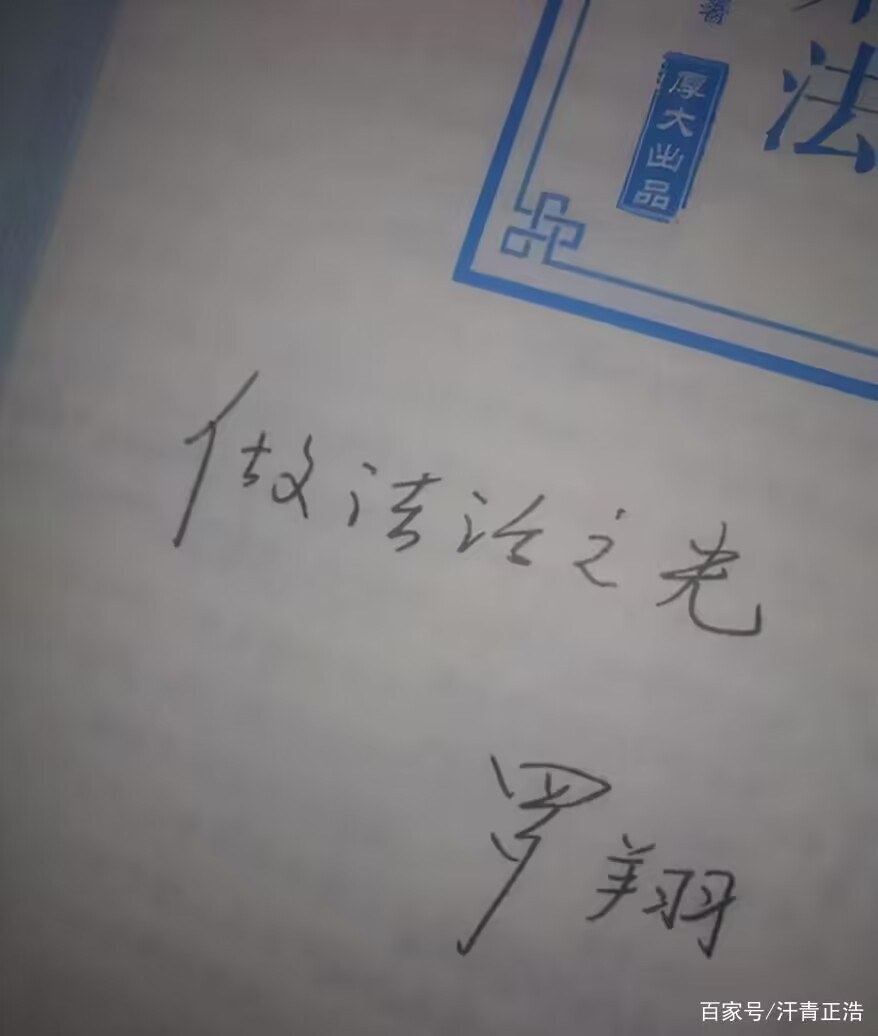 著
法
厚大出品
做法治之光
罗翔
百家号/汗青正浩